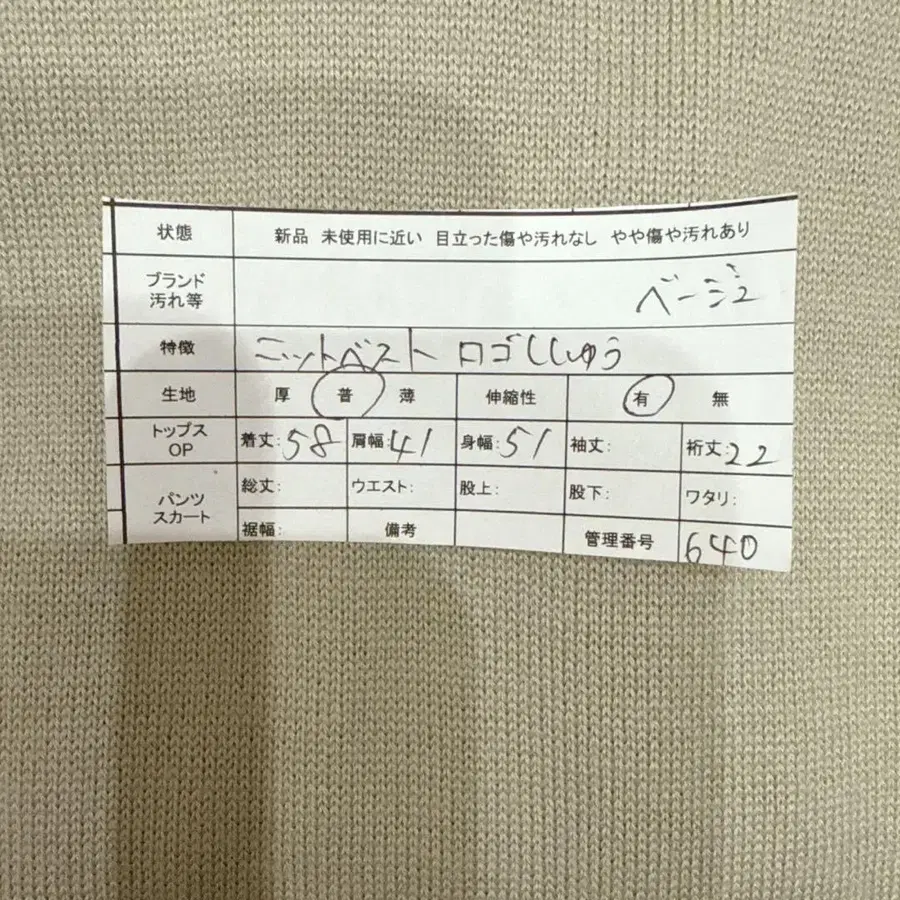 状態 新品 未使用に近い 目立った傷や汚れなし やや傷や汚れあり
ブランド
汚れ等
ベージュ
特徴 ニットベスト ロゴししゅう
生地 厚 普 薄 伸縮性 有 無
トップス
OP
着丈:58 肩幅:41 身幅:51 袖丈: 裄丈:22
パンツ
スカート
総丈: ウエスト: 股上: 股下: ワタリ:
裾幅: 備考 管理番号 640